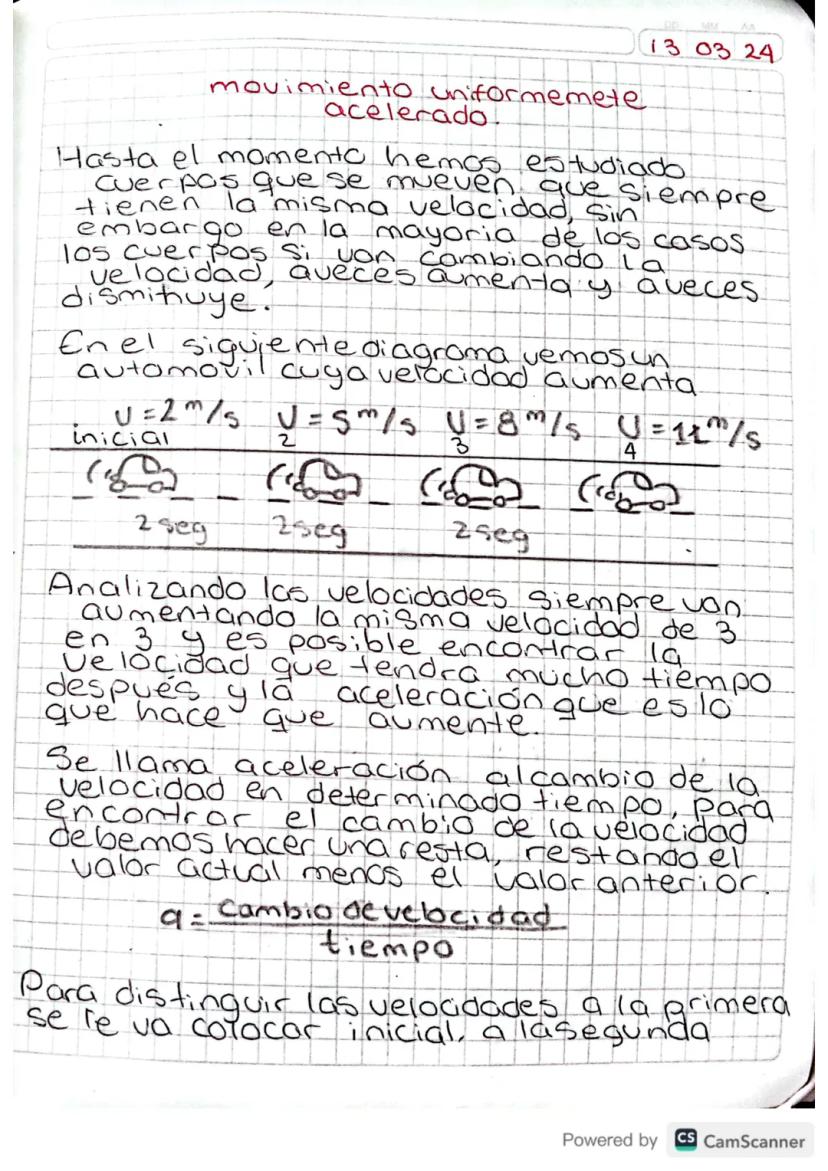 DD MM AA
13 03 24
movimiento uniformemete
acelerado.
Hasta el momento hemos estudiado
cuerpos que se mueven que siempre
tienen la misma velocidad, sin
embargo en la mayoria de los casos
los cuerpos si van cambiando la
velocidad, aveces aumenta y aveces
disminuye.
En el siguiente diagrama vemos un
automovil cuya velocidad aumenta
V=2m/s V=5m/s V=8m/s V=11m/s
inicial 2 3 4
2seg 2seg 2seg
Analizando las velocidades siempre van
aumentando la misma velocidad de 3
en 3 y es posible encontrar la
velocidad que tendra mucho tiempo
después y la aceleración que es lo
que hace que aumente.
Se llama aceleración al cambio de la
velocidad en determinado tiempo, para
encontrar el cambio de la velocidad
debemos hacer una resta, restando el
valor actual menos el valor anterior.
a=cambio de velocidad
tiempo
Para distinguir las velocidades a la primera
se le va colocar inicial, a la segunda
Powered by CS CamScanner